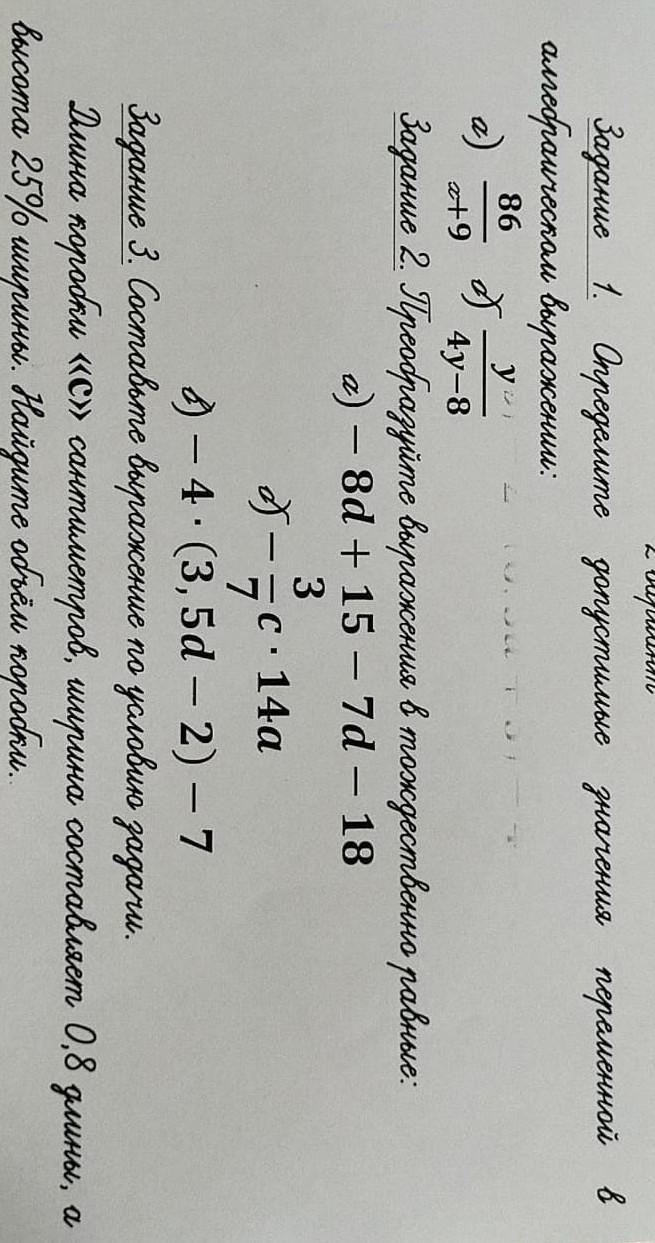 2 вариант
Задание 1. Определите допустимые значения переменной в
алгебраическом выражении:
а) 86/(x+9) б) y/(4y−8)
Задание 2. Преобразуйте выражения в тождественно равные:
а) − 8d + 15 − 7d − 18
б) − 3/7 c · 14a
в) − 4 · (3, 5d − 2) − 7
Задание 3. Составьте выражение по условию задачи.
Длина коробки «c» сантиметров, ширина составляет 0,8 длины, а
высота 25% ширины. Найдите объём коробки.